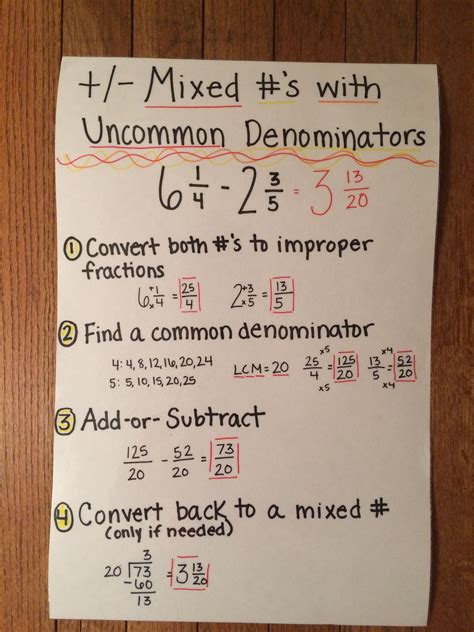 +/- Mixed #'s with
Uncommon Denominators
6 1/4 - 2 3/5 = 3 13/20
① Convert both #'s to improper
fractions
6 +1/x4 = 25/4 2 +3/x5 = 13/5
② Find a common denominator
4: 4, 8, 12, 16, 20, 24
5: 5, 10, 15, 20, 25
LCM = 20
25/4 x5/x5 = 125/20 13/5 x4/x4 = 52/20
③ Add-or-Subtract
125/20 - 52/20 = 73/20
④ Convert back to a mixed #
(only if needed)
3
20 73 = 3 13/20
-60
13